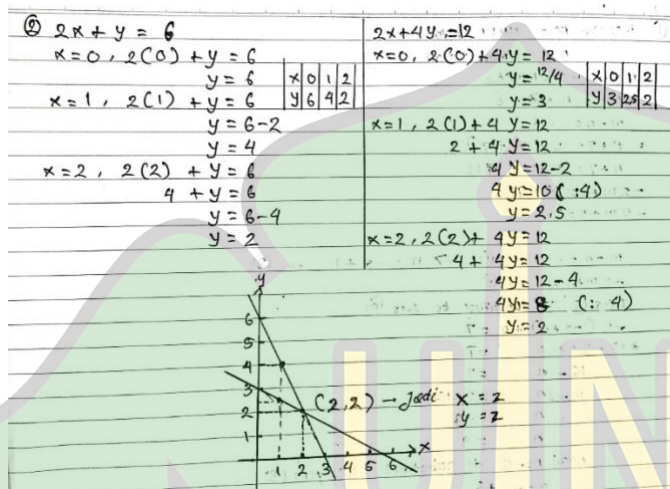 ② 2x + y = 6
x = 0, 2(0) + y = 6
y = 6
x 0 1 2
y 6 4 2
x = 1, 2(1) + y = 6
y = 6-2
y = 4
x = 2, 2(2) + y = 6
4 + y = 6
y = 6-4
y = 2
2x + 4y = 12
x = 0, 2(0) + 4y = 12
y = 12/4
y = 3
x 0 1 2
y 3 2,5 2
x = 1, 2(1) + 4y = 12
2 + 4y = 12
4y = 12-2
4y = 10 (:4)
y = 2,5
x = 2, 2(2) + 4y = 12
4 + 4y = 12
4y = 12-4
4y = 8 (: 4)
y = 2
y
6
5
4
3
2
1
(2,2) → jadi x = 2
y = 2
x
1 2 3 4 5 6
UIN